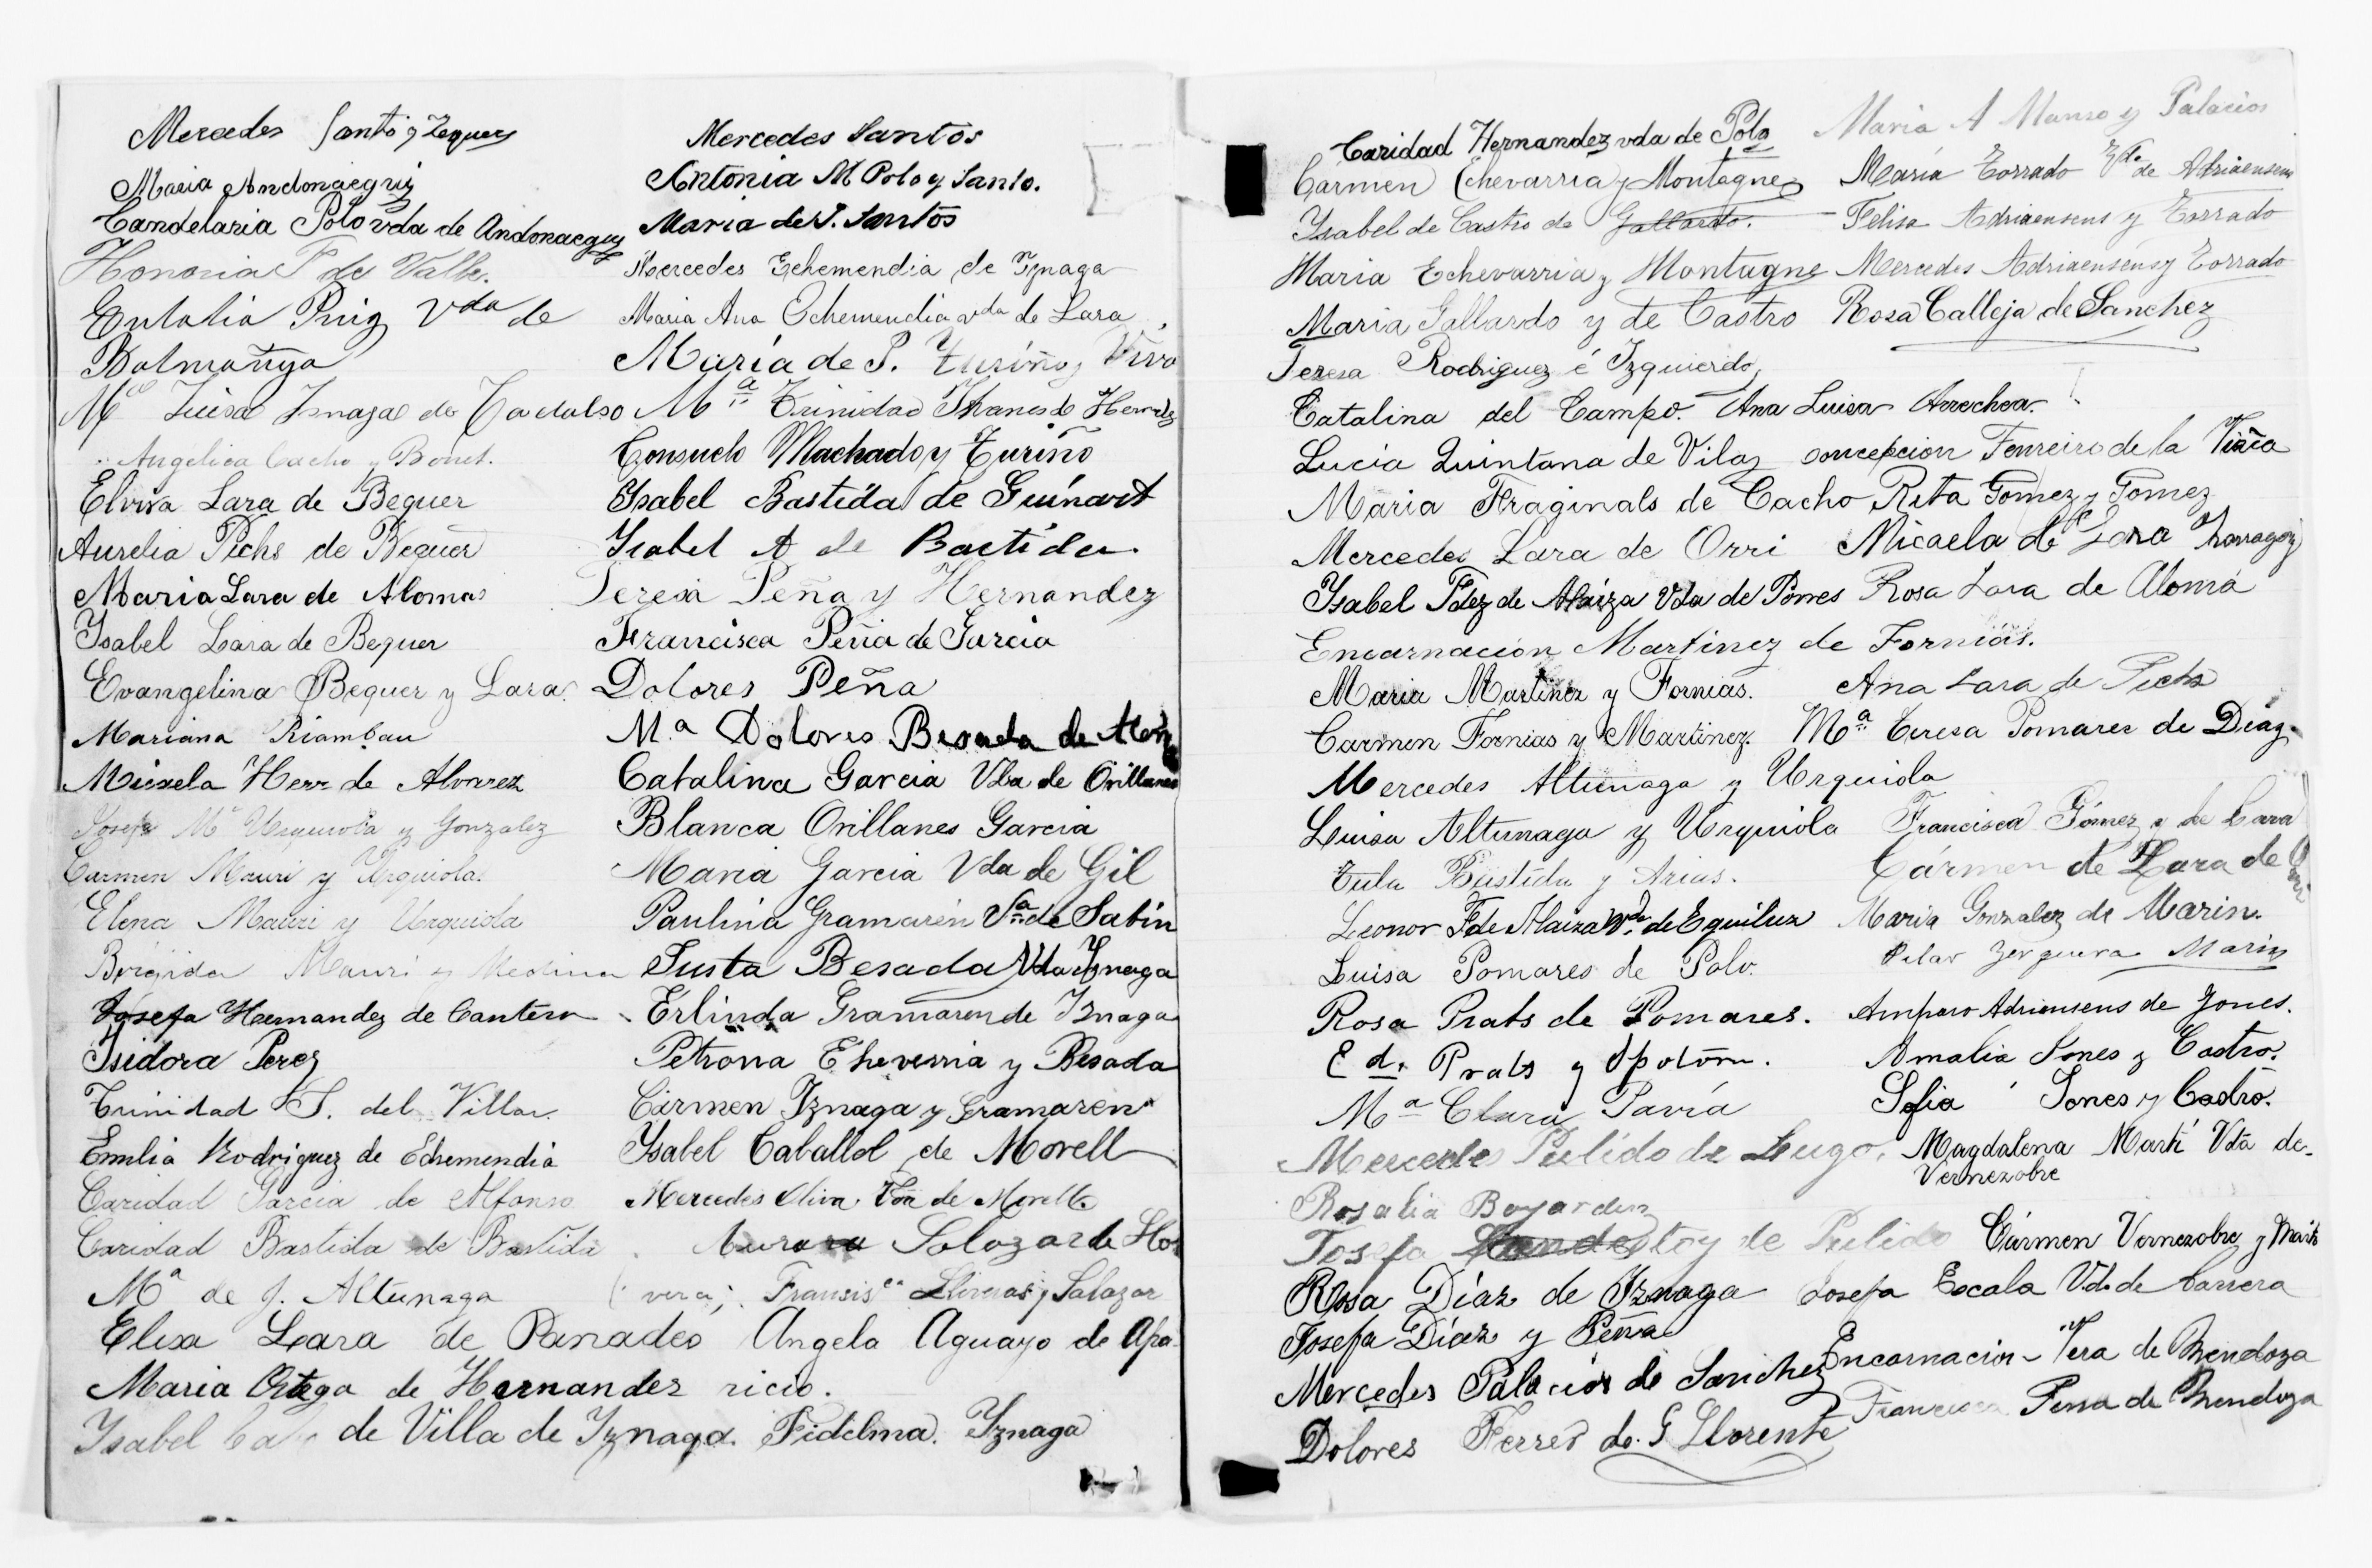 Mercedes Santo y Zequer
Maria Andonaegui
Candelaria Polo vda de Andonaegui
Honoria F de Valle.
Eulalia Puig Vda de
Balmañya
Ma Luisa Iznaga de Cadalso
Angélica Cacho y Bonet.
Elvira Lara de Bequer
Aurelia Pichs de Bequer
Maria Lara de Alomas
Ysabel Lara de Bequer
Evangelina Bequer y Lara
Mariana Riambau
Micaela Herr de Alvarez
Josefa Ma Urquiola y Gonzalez
Carmen Mauri y Urquiola.
Elena Mauri y Urquiola
Brigida Mauri y Medina
Josefa Hernandez de Cantero
Isidora Perez
Trinidad S. del Villar.
Emilia Rodriguez de Echemendia
Caridad Garcia de Alfonso
Caridad Bastida de Bastida
Ma de J. Altunaga
Elisa Lara de Panades
Maria Ortega de Hernandez
Ysabel de Villa de Yznaga.
Mercedes Santos
Antonia M Polo y Santo.
Maria de J. Santos
Mercedes Echemendia de Iznaga
Maria Ana Echemendia vda de Lara
María de P. Turiño y Vivo
Ma Trinidad de
Consuelo Machado y Turiño
Isabel Bastida de Guinart
Isabel A de Bastida.
Teresa Peña y Hernandez
Francisca Peña de Garcia
Dolores Peña
Ma Dolores Besada de
Catalina Garcia Vda de Orillanes
Blanca Orillanes Garcia
Maria Garcia Vda de Gil
Paulina Gramarén Sra de Sabin
Justa Besada Vda Yznaga
Erlinda Gramaren de Iznaga
Petrona Echeverria y Besada
Cármen Iznaga y Gramaren
Ysabel Caballol de Morell
Mercedes Oliva Vda de Morell.
Aurora Salazar de Llo
vera; Francisca Lloveras y Salazar
Angela Aguayo de Apa
ricio.
Fidelma. Yznaga
Caridad Hernandez vda de Polo
Cármen Echevarria y Montagne
Ysabel de Castro de Gallardo.
Maria Echevarria y Montagne
Maria Gallardo y de Castro
Teresa Rodriguez é Izquierdo,
Catalina del Campo. Ana Luisa Arrechea.
Lucia Quintana de Vila
Maria Fraginals de Cacho
Mercedes Lara de Orri
Ysabel Fdez de Alaiza Vda de Porres
Encarnación Martinez de Fornias.
Maria Martinez y Fornias.
Carmen Fornias y Martinez.
Mercedes Altunaga y Urquiola
Luisa Altunaga y Urquiola
Tula Bastida y Arias.
Leonor F de Alaiza vda de Eguiluz
Luisa Pomares de Polo.
Rosa Prats de Pomares.
Ed. Prats y Spotorn.
Ma Clara Pavía
Mercedes Pulido de Lugo.
Rosalia Boyarden
Josefa toy de Pulido
Rosa Díaz de Iznaga
Josefa Díaz y Peña
Mercedes Palacios de Sanchez
Dolores Ferrer de G Llorente
Maria A Manso y Palacios
María Torrado Vda de Adriaensens
Felisa Adriaensens y Torrado
Mercedes Adriaensens y Torrado
Rosa Calleja de Sanchez
Concepcion Fenreiro de la Viña
Rita Gomez y Gomez
Micaela de Lara
Rosa Lara de Alomá
Ana Lara de Pichs
Ma Teresa Pomares de Diaz.
Francisca Gómez y de Lara
Cármen de Lara de
Maria Gonzalez de Marin.
Pilar Zerquera Marin
Amparo Adriaensens de Jones.
Amalia Jones y Castro.
Sofia Jones y Castro.
Magdalena Martí Vda de
Vernezobre
Cármen Vernezobre y Martí
Josefa Escala Vda de Carrera
Encarnacion Vera de Mendoza
Francisca Pessa de Mendoza